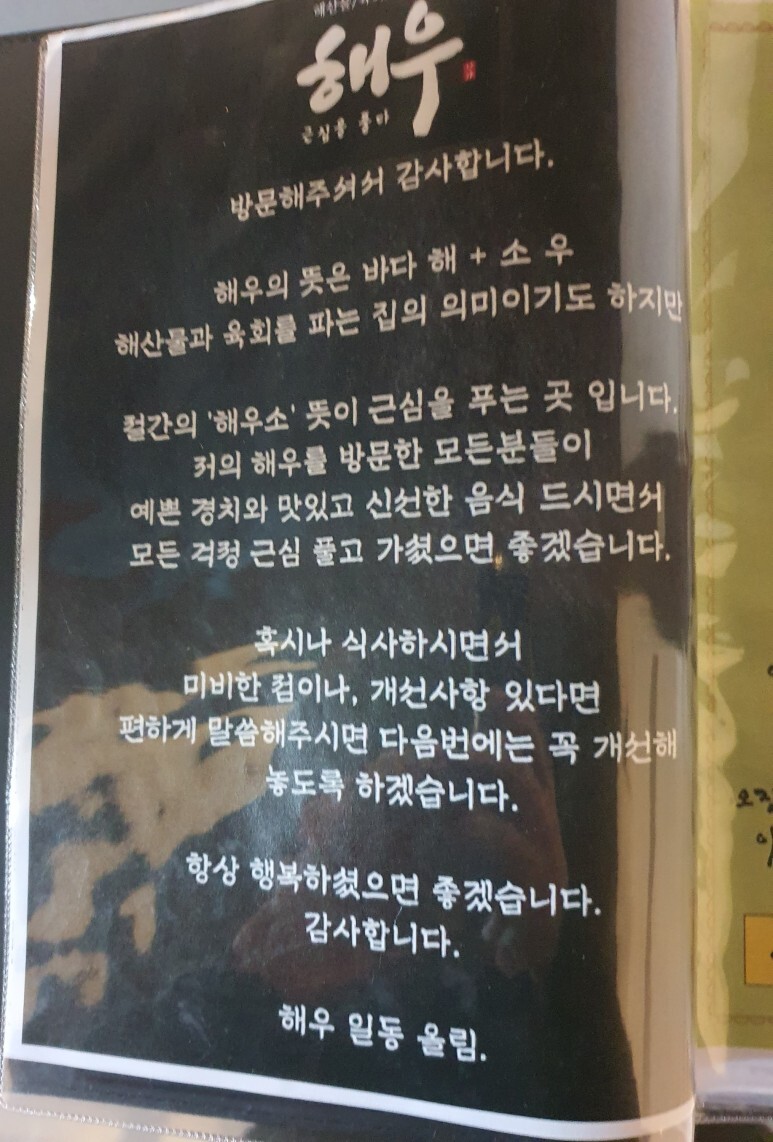 해산물/
해우
근심을 풀다
방문해주셔서 감사합니다.
해우의 뜻은 바다 해 + 소 우
해산물과 육회를 파는 집의 의미이기도 하지만
절간의 '해우소' 뜻이 근심을 푸는 곳 입니다.
저의 해우를 방문한 모든분들이
예쁜 경치와 맛있고 신선한 음식 드시면서
모든 걱정 근심 풀고 가셨으면 좋겠습니다.
혹시나 식사하시면서
미비한 점이나, 개선사항 있다면
편하게 말씀해주시면 다음번에는 꼭 개선해
놓도록 하겠습니다.
항상 행복하셨으면 좋겠습니다.
감사합니다.
해우 일동 올림.